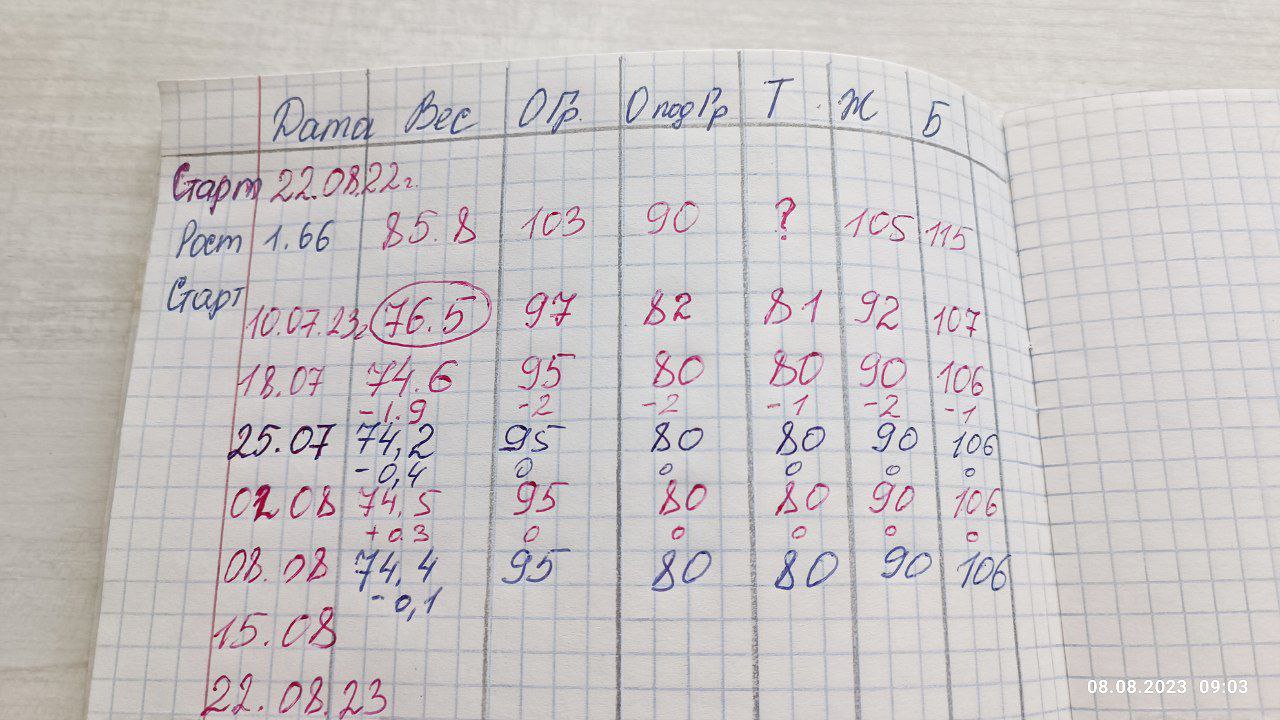 Дата Вес О Гр. О под Гр Т Ж Б
Старт 22.08.22г.
Рост 1.66 85.8 103 90 ? 105 115
Старт
10.07.23г 76.5 97 82 81 92 107
18.07 74.6 95 80 80 90 106
-1.9 -2 -2 -1 -2 -1
25.07 74,2 95 80 80 90 106
-0,4 0 0 0 0 0
02 08 74.5 95 80 80 90 106
+0.3 0 0 0 0 0
08.08 74,4 95 80 80 90 106
-0,1
15.08
22.08.23
08.08.2023 09:03